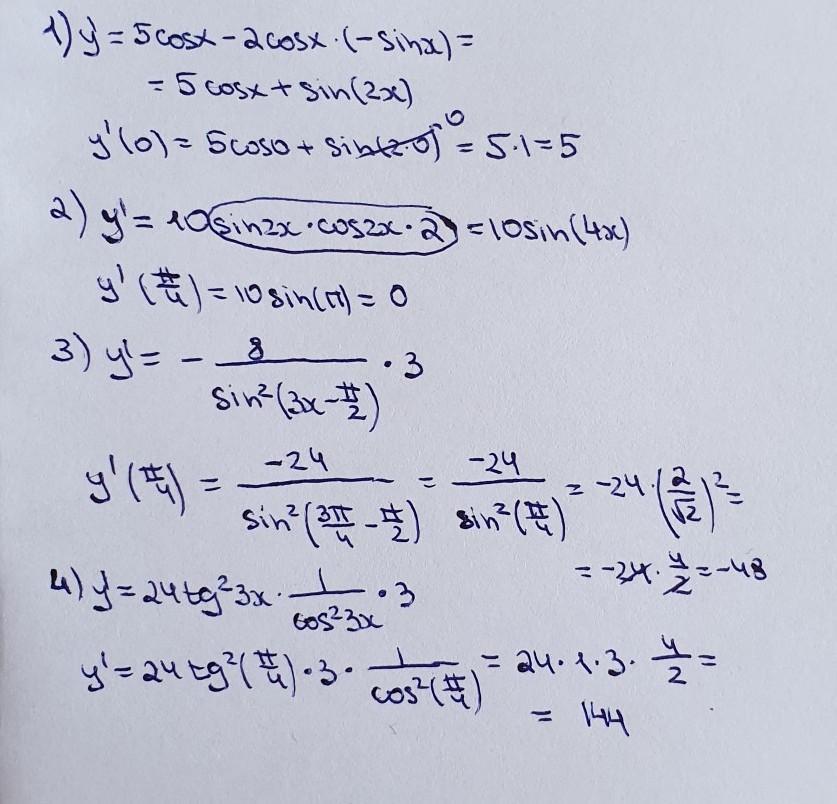 1) y' = 5cosx - 2cosx · (-sinx) =
= 5cosx + sin(2x)
y'(0) = 5cos0 + sin(2·0) 0 = 5·1 = 5
2) y' = 10(sin2x · cos2x · 2) = 10sin(4x)
y'(π/4) = 10sin(π) = 0
3) y' = - 8/sin²(3x - π/2) · 3
y'(π/4) = -24/sin²(3π/4 - π/2) = -24/sin²(π/4) = -24 · (2/√2)² =
= -24 · 4/2 = -48
4) y' = 24tg²3x · 1/cos²3x · 3
y' = 24tg²(π/4) · 3 · 1/cos²(π/4) = 24 · 1 · 3 · 4/2 =
= 144